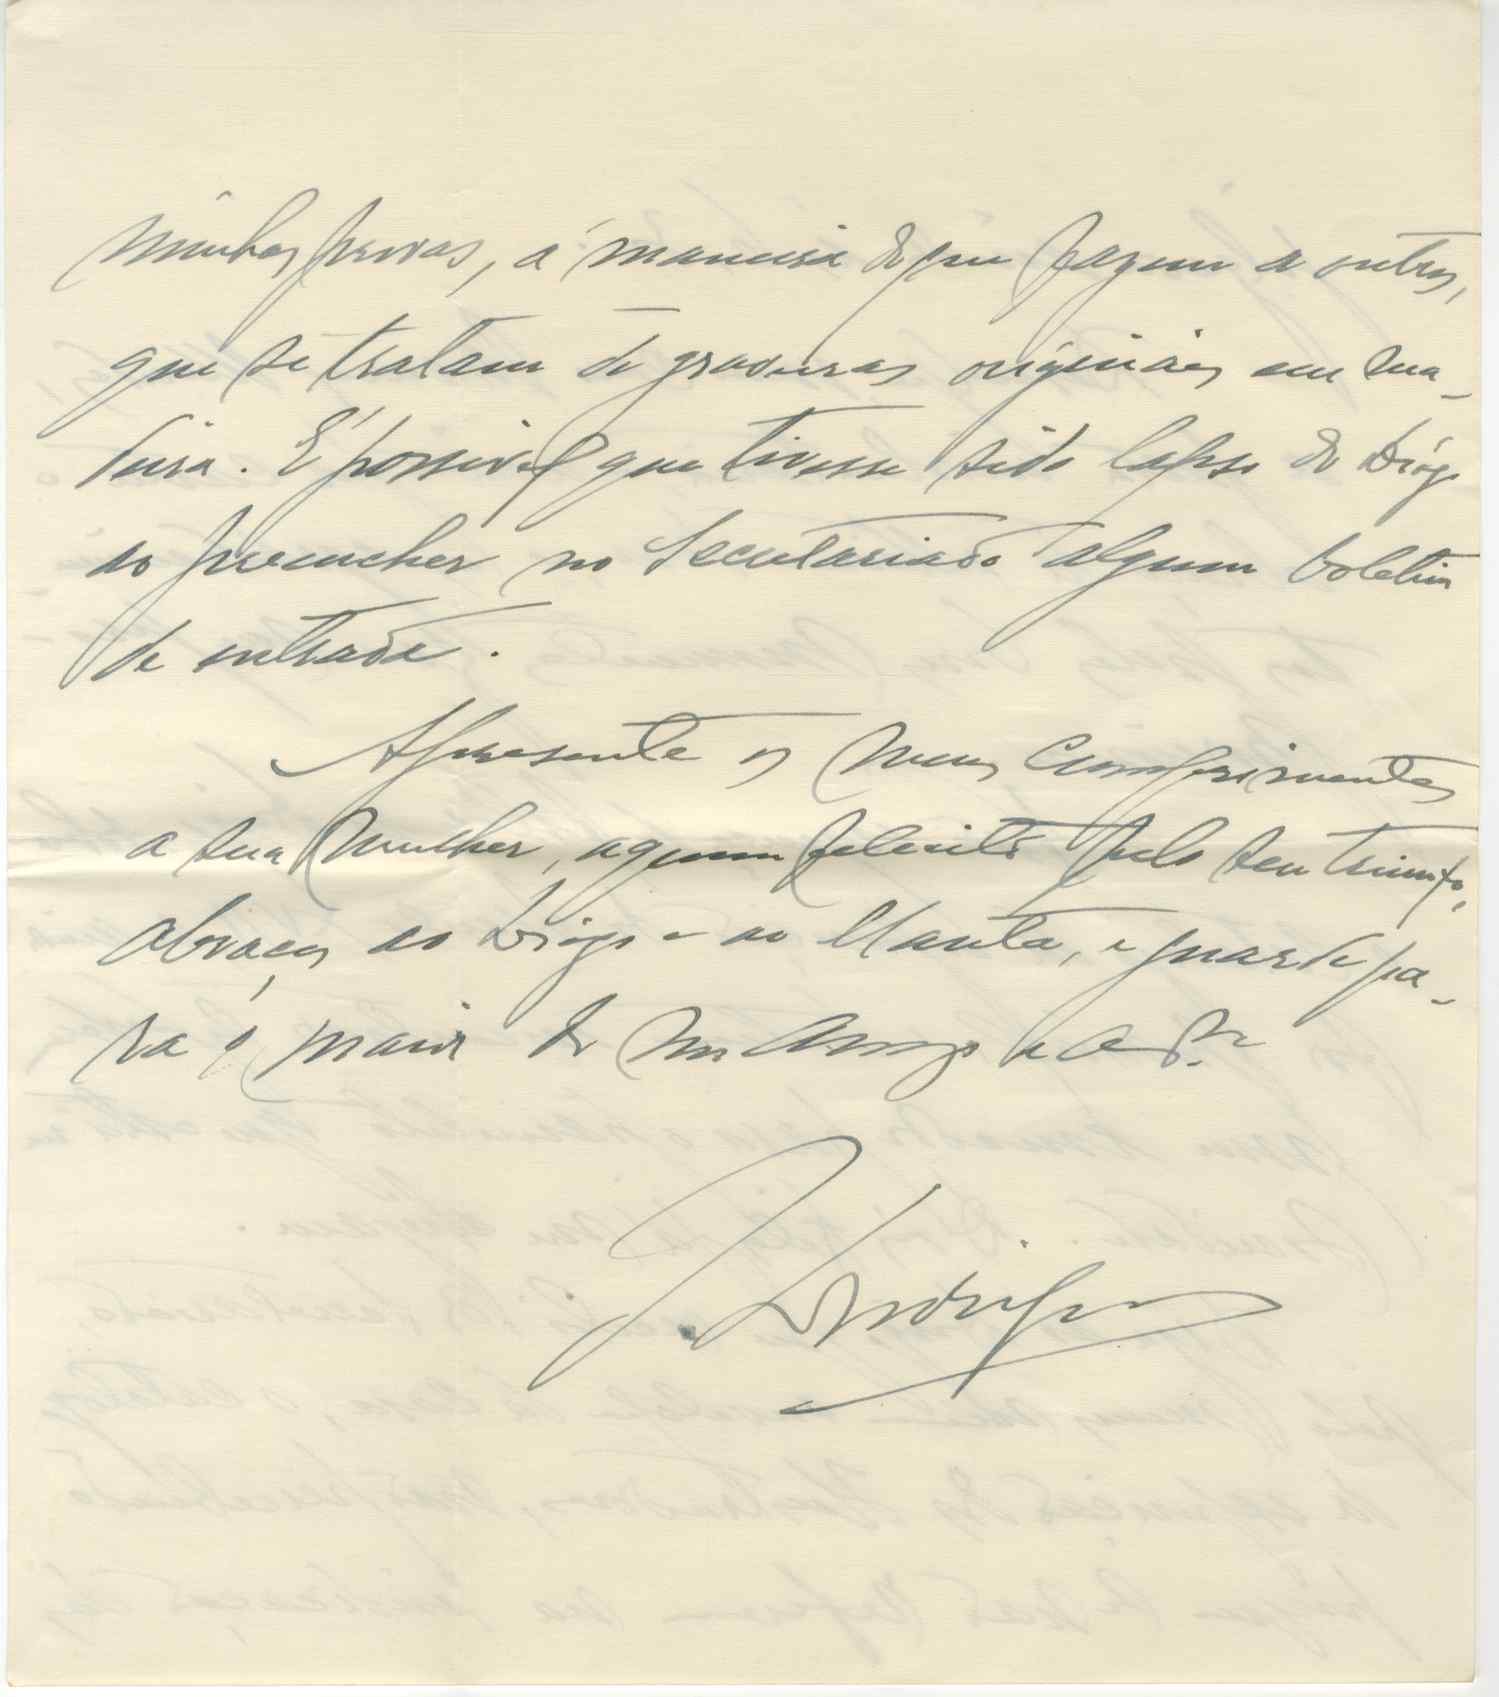 minhas provas, á maneira do que fazem a outros,
que se tratam de gravuras originais em ma-
deira. É possivel que tivesse sido lapso do Diogo
ao preencher no Secretariado algum boletim
de entrada.
Apresente os meus cumprimentos
a sua mulher, a quem felicito pelo seu triunfo,
abraços ao Diogo e ao Manta, e guarde pa-
ra si o maior do seu Amigo e
J. Rodrigues